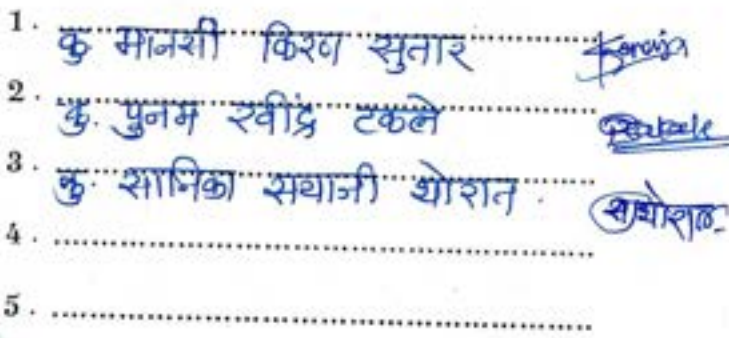 1. कु मानसी किरण सुतार
2. कु. पुनम रवींद्र टकले
3. कु. सानिका सयाजी थोरात.
4.
5.